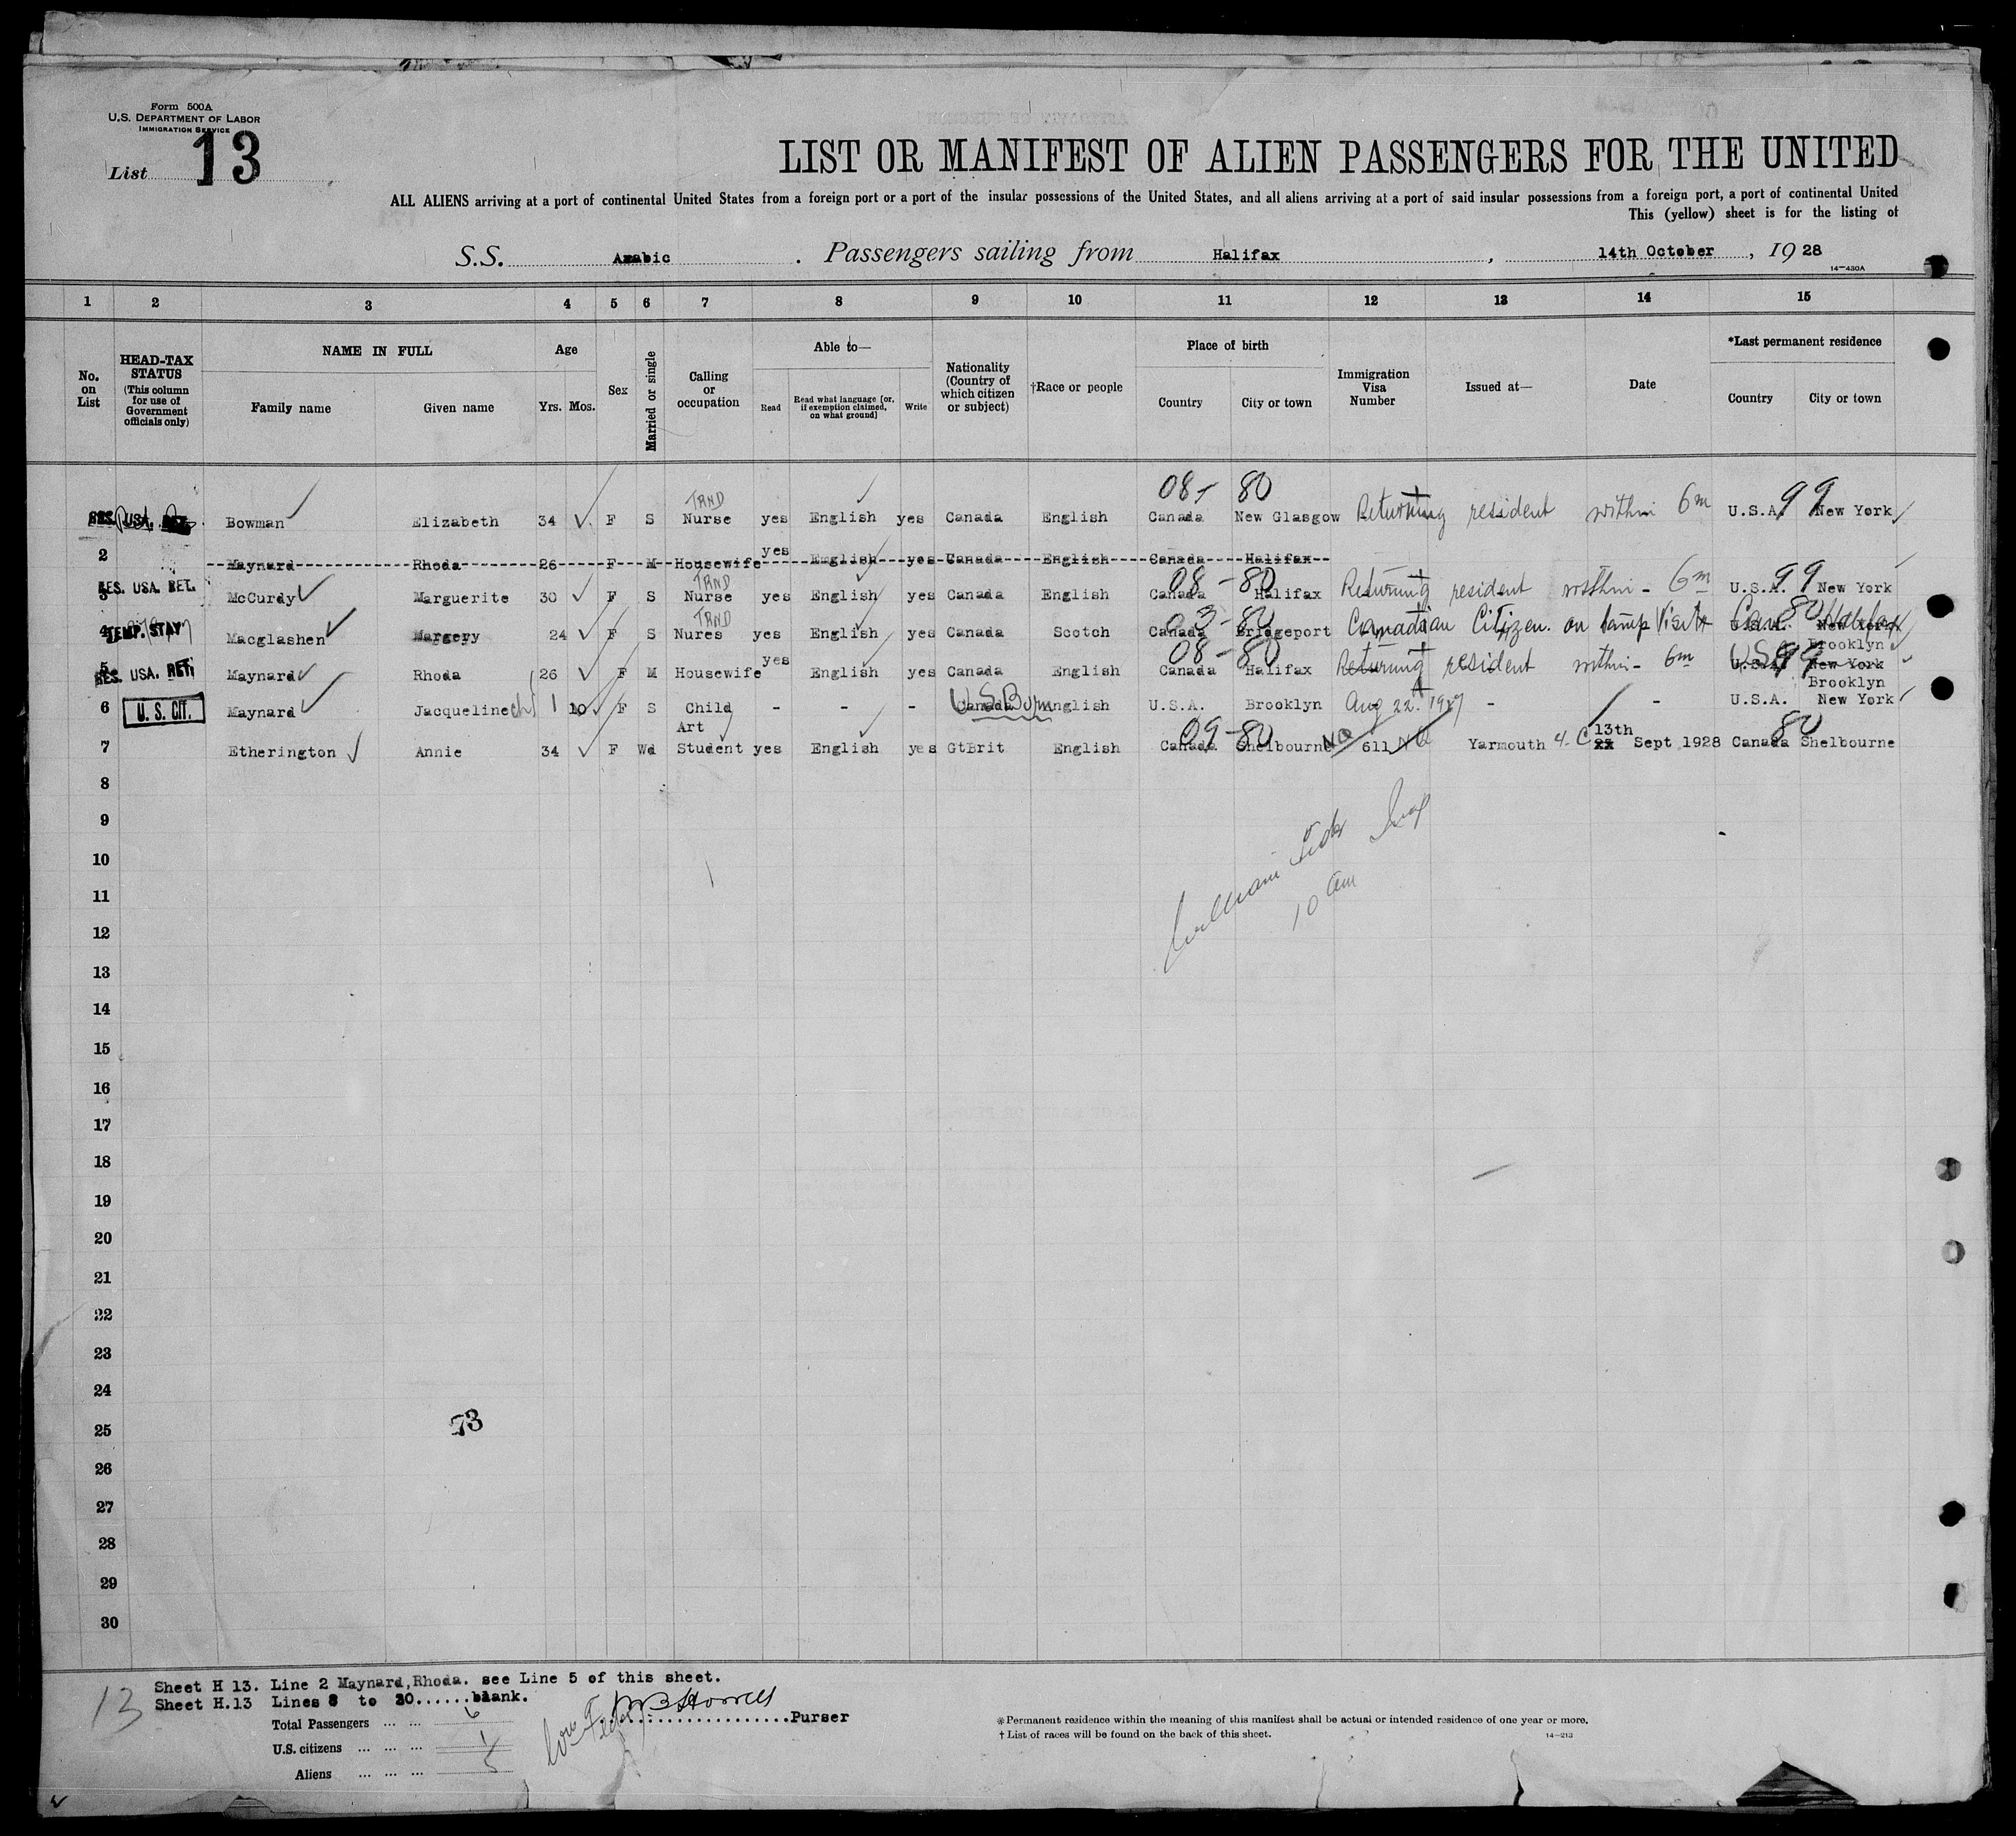 Form 500A
U.S. DEPARTMENT OF LABOR
IMMIGRATION SERVICE
List 13
LIST OR MANIFEST OF ALIEN PASSENGERS FOR THE UNITED
ALL ALIENS arriving at a port of continental United States from a foreign port or a port of the insular possessions of the United States, and all aliens arriving at a port of said insular possessions from a foreign port, a port of continental United
This (yellow) sheet is for the listing of
S.S. Arabic . Passengers sailing from Halifax , 14th October , 19 28
14—430A
1 2 3 4 5 6 7 8 9 10 11 12 13 14 15
No. on List
HEAD-TAX STATUS (This column for use of Government officials only)
NAME IN FULL
Family name Given name
Age
Yrs. Mos.
Sex
Married or single
Calling or occupation
Able to—
Read Read what language [or, if exemption claimed, on what ground] Write
Nationality (Country of which citizen or subject)
†Race or people
Place of birth
Country City or town
Immigration Visa Number
Issued at—
Date
*Last permanent residence
Country City or town
TRND 08 - 80
RES. USA. RET. Bowman Elizabeth 34 F S Nurse yes English yes Canada English Canada New Glasgow Returning resident within 6m U.S.A. 99 New York
2 Maynard Rhoda 26 F M Housewife yes English yes Canada English Canada Halifax
TRND 08 - 80
3 RES. USA. RET. McCurdy Marguerite 30 F S Nurse yes English yes Canada English Canada Halifax Returning resident within - 6m U.S.A. 99 New York
TRND 03 - 80
4 TEMP. STAY Macglashen Margery 24 F S Nures yes English yes Canada Scotch Canada Bridgeport Canadian Citizen. on temp Visit U.S.A. New York Can 80 Halifax
08 - 80 Brooklyn
5 RES. USA. RET. Maynard Rhoda 26 F M Housewife yes English yes Canada English Canada Halifax Returning resident within - 6m U.S.A. 99 New York
Brooklyn
6 U. S. CIT. Maynard Jacqueline 1 10 F S Child - - - Canada U.S. Born English U.S.A. Brooklyn Aug 22. 1927 - - U.S.A. New York
Art 09 - 80 13th 80
7 Etherington Annie 34 F Wd Student yes English yes GtBrit English Canada Shelbourne NQ 611 Yarmouth 4.C xx Sept 1928 Canada Shelbourne
8
9
10
10 am
11
12
13
14
15
16
17
18
19
20
21
22
23
24
25
73
26
27
28
29
30
Sheet H 13. Line 2 Maynard,Rhoda. see Line 5 of this sheet.
Sheet H.13 Lines 8 to 30......blank.
13
Total Passengers ... ... 6
U.S. citizens ... ... ... 1
Aliens ... ... ... 5
....................Purser
*Permanent residence within the meaning of this manifest shall be actual or intended residence of one year or more.
†List of races will be found on the back of this sheet.
14—213